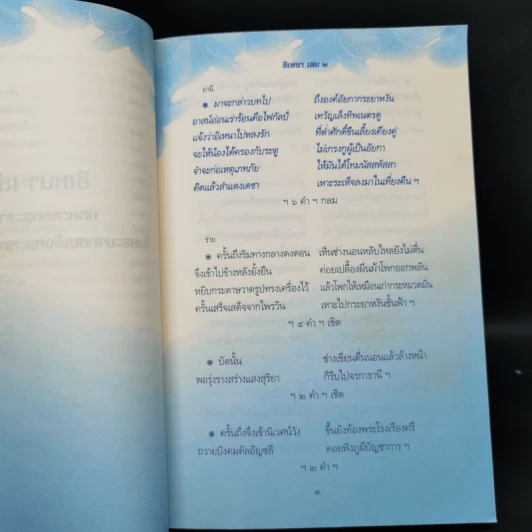 อิเหนา เล่ม ๒
ยานี
๏ มาจะกล่าวบทไป ถึงองค์อัยกากระยาหงัน
อาสน์อ่อนเร่าร้อนคือไฟกัลป์ เทวัญเล็งทิพเนตรดู
แจ้งว่าอิเหนาไปหลงรัก ที่ต่ำศักดิ์ขืนเลี้ยงเคียงคู่
จะให้น้องได้ครองกับระตู ไม่เกรงกูผู้เป็นอัยกา
จำจะก่อเหตุเภทภัย ให้มันได้โทมนัสสหัสสา
คิดแล้วสำแดงเดชา เหาะระเห็จลงมาในเที่ยงคืน ฯ
ฯ ๖ คำ ฯ กลม
ร่าย
๏ ครั้นถึงริมทางกลางดงดอน เห็นช่างนอนหลับไหลยังไม่ตื่น
จึงเข้าไปข้างหลังยั้งยืน ค่อยเปลื้องผืนผ้าโพกออกพลัน
หยิบกระดาษวาดรูปทรงเครื่องไว้ แล้วโพกให้เหมือนเก่ากระหมวดมั่น
ครั้นเสร็จเสด็จจากไพรวัน เหาะไปกระยาหงันชั้นฟ้า ฯ
ฯ ๔ คำ ฯ เชิด
๏ บัดนั้น ช่างเขียนตื่นนอนแล้วล้างหน้า
พอรุ่งรางสร่างแสงสุริยา ก็รีบไปจรกาธานี ฯ
ฯ ๒ คำ ฯ เชิด
๏ ครั้นถึงจึงเข้านิเวศน์วัง ขึ้นยังท้องพระโรงเรืองศรี
ถวายบังคมคัลอัญชลี คอยฟังภูมีบัญชาการ ฯ
ฯ ๒ คำ ฯ
๓